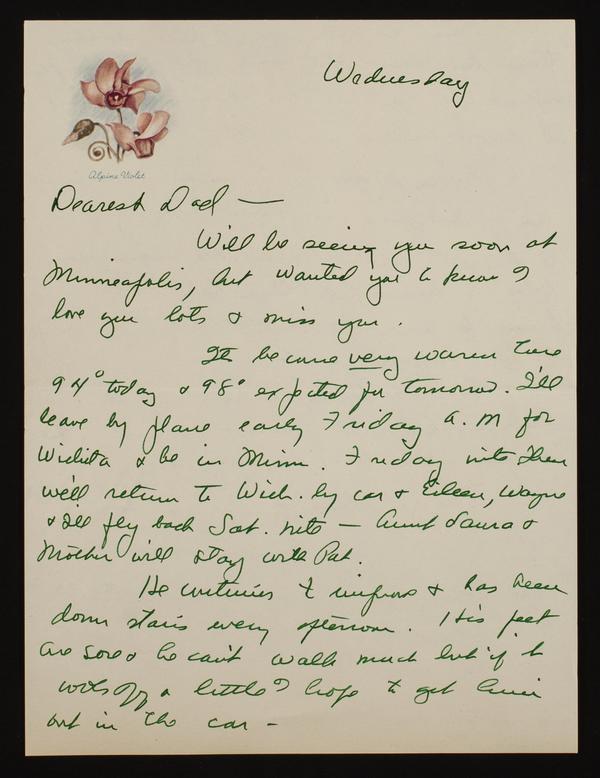 Wednesday
Alpine Violet
Dearest Dad —
Will be seeing you soon at
Minneapolis, but wanted you to know I
love you lots & miss you.
It became very warm here
94° today & 98° expected for tomorrow. I'll
leave by plane early Friday A.M for
Wichita & be in Minn. Friday nite then
we'll return to Wich. by car & Eileen, Wayne
& I'll fly back Sat. nite — Aunt Laura &
Mother will stay with Pat.
He continues to improve & has been
down stairs every afternoon. His feet
are sore & he can't walk much but if it
cools off a little I hope to get him
out in the car -